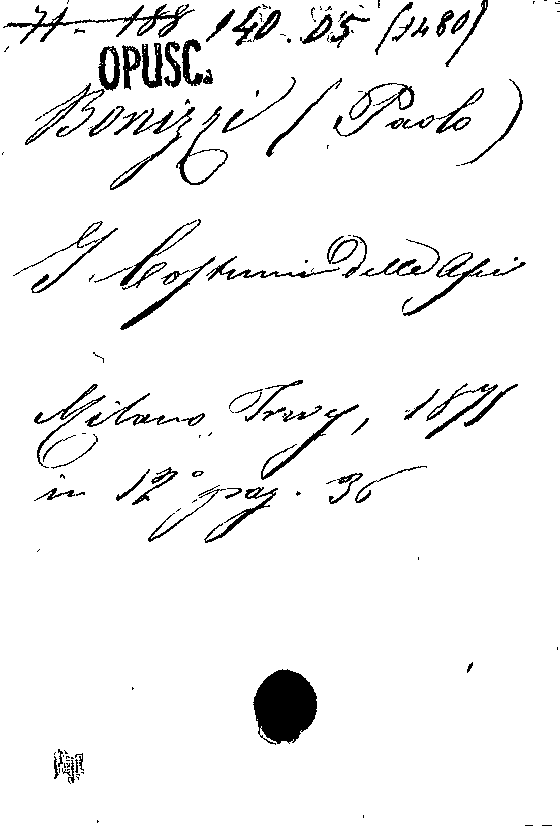 71-188 140.D5 (1480)
OPUSC.
Bonizzi (Paolo)
I Costumi delle Api
Milano, Trevy, 1871
in 12° pag. 36